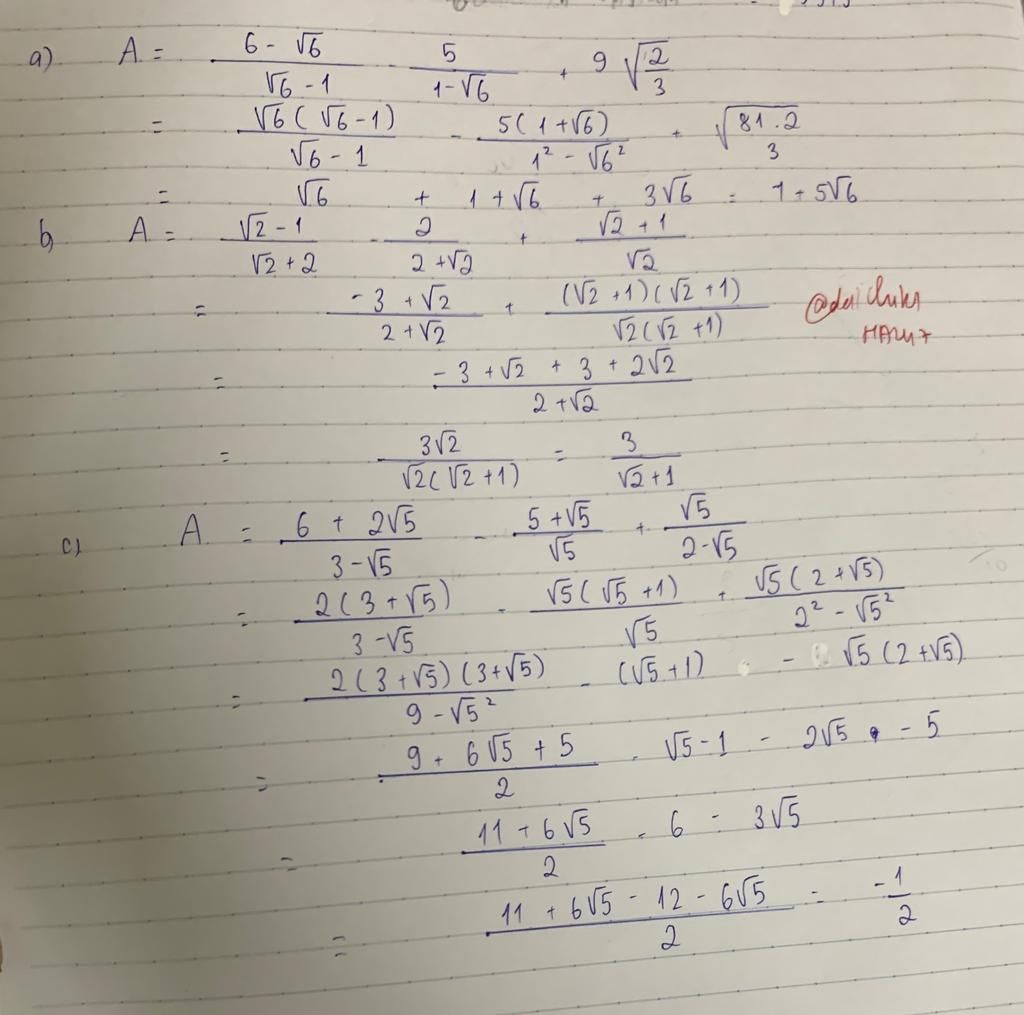 a) A = (6 - √6)/(√6 - 1) - 5/(1-√6) + 9√(2/3)
= √6(√6-1)/(√6-1) - 5(1+√6)/(1² - √6²) + √(81.2/3)
= √6 + 1+√6 + 3√6 = 1+5√6
b) A = (√2-1)/(√2+2) - 2/(2+√2) + (√2+1)/√2
= (-3+√2)/(2+√2) + (√2+1)(√2+1)/(√2(√2+1))
= (-3+√2+3+2√2)/(2+√2)
= 3√2/(√2(√2+1)) = 3/(√2+1)
c) A = (6+2√5)/(3-√5) - (5+√5)/√5 + √5/(2-√5)
= 2(3+√5)/(3-√5) - √5(√5+1)/√5 + √5(2+√5)/(2² - √5²)
= 2(3+√5)(3+√5)/(9-√5²) - (√5+1) - √5(2+√5)
= (9+6√5+5)/2 - √5-1 - 2√5 - 5
= (11+6√5)/2 - 6 - 3√5
= (11+6√5-12-6√5)/2 = -1/2